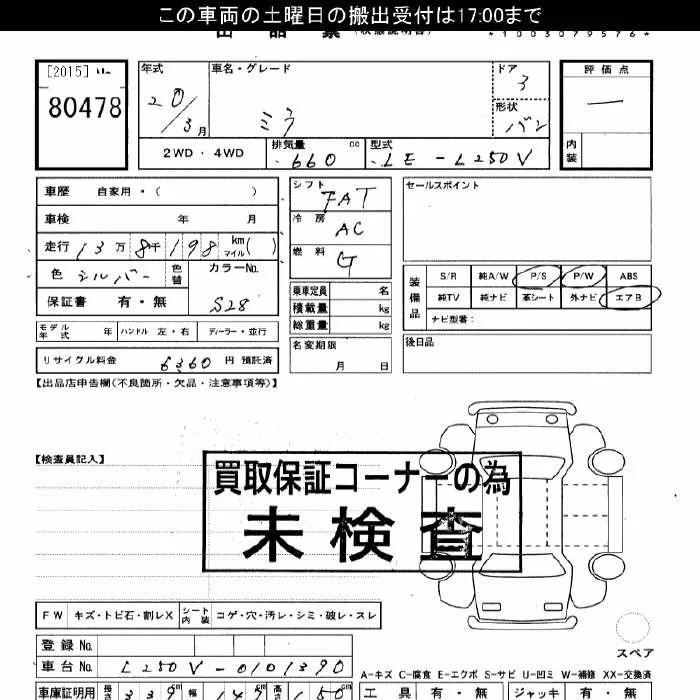 この車両の土曜日の搬出受付は17:00まで
出品票 (状態説明書)
*1003079576*
[2015]
80478
年式
20/3月
車名・グレード
ミラ
ドア
3
形状
バン
評価点
一
内装
2WD・4WD
排気量 660 cc
型式 LE-L250V
車歴 自家用・( )
車検 年 月
走行 13万8千198 km マイル( )
色 シルバー 色替
カラーNo.
S28
保証書 有・無
モデル年式 年 ハンドル 左・右 ディーラー・並行
リサイクル料金 6360 円 預託済
シフト FAT
冷房 AC
燃料 G
乗車定員 名
積載量 kg
総重量 kg
名変期限
月 日
セールスポイント
装備品
S/R 純A/W P/S P/W ABS
純TV 純ナビ 革シート 外ナビ エアB
ナビ型番:
後日品
【出品店申告欄(不良箇所・欠品・注意事項等)】
【検査員記入】
買取保証コーナーの為
未検査
FW キズ・トビ石・割レX シート内装 コゲ・穴・汚レ・シミ・破レ・スレ
登録No.
車台No. L250V-0101390
スペア
A-キズ C-腐食 E-エクボ S-サビ U-凹ミ W-補修 XX-交換済
車庫証明用 長さ 339cm 幅 147cm 高さ 150cm
工具 有・無 ジャッキ 有・無